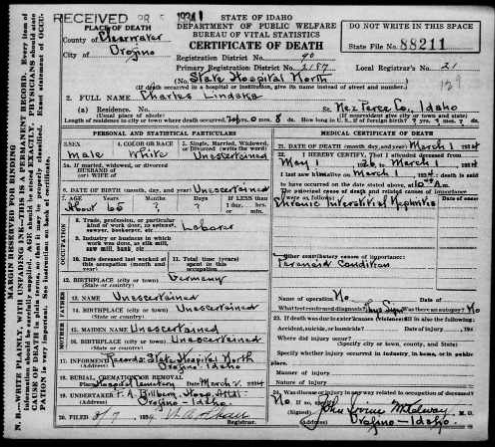 RECEIVED
STATE OF IDAHO
DEPARTMENT OF PUBLIC WELFARE
BUREAU OF VITAL STATISTICS
CERTIFICATE OF DEATH
DO NOT WRITE IN THIS SPACE
State File No. 88211
PLACE OF DEATH
County of Clearwater
City of Orofino
Registration District No. 90
Primary Registration District No. 2187
Local Registrar's No. 21
(No. State Hospital North
(If death occurred in a hospital or institution, give its name instead of street and number)
2. FULL NAME Charles Lindska
(a) Residence. No. St. Nez Perce Co., Idaho
(Usual place of abode) (If nonresident give city or town and state)
Length of residence in city or town where death occurred
PERSONAL AND STATISTICAL PARTICULARS
MEDICAL CERTIFICATE OF DEATH
3. SEX 4. COLOR OR RACE 5. Single, Married, Widowed,
Male White Unascertained
5a. If married, widowed, or divorced
HUSBAND of
(or) WIFE of
6. DATE OF BIRTH (month, day, and year) Unascertained
7. AGE Years Months Days
About 65 ? ?
8. Trade, profession, or particular
kind of work done, as
Laborer
9. Industry or business in which
work was done, as silk mill,
saw mill, bank, etc.
10. Date deceased last worked at
this occupation (month and
year)
11. Total time (years)
spent in this
occupation
OCCUPATION
12. BIRTHPLACE (city or town) Germany
(State or country)
13. NAME Unascertained
14. BIRTHPLACE (city or town) Unascertained
(State or country)
15. MAIDEN NAME Unascertained
16. BIRTHPLACE (city or town) Unascertained
(State or country)
17. INFORMANT Records State Hospital North
(Address) Orofino Idaho
18. BURIAL, CREMATION OR REMOVAL
Place Hospital Cemetery Date March 2, 1934
19. UNDERTAKER
(Address) Orofino - Idaho.
20. FILED
21. DATE OF DEATH (month, day, and year) March 1 1934
22. I HEREBY CERTIFY, That I attended deceased from
May 1 1926, to March 1 1934
I last saw him alive on March 1 1934, death is said
to have occurred on the date stated above, at
The principal cause of death and related causes of importance
Chronic Interstitial Nephritis
Other contributory causes of importance:
Paranoid Condition
Name of operation No
What test confirmed diagnosis? Was there an autopsy? No
Accident, suicide, or homicide? Date of injury 193
Where did injury occur?
Specify whether injury occurred in industry, in home, or in public
place.
Manner of injury
Nature of injury
No
M.D.
(Address) Orofino - Idaho.
MARGIN RESERVED FOR BINDING
N. B.—WRITE PLAINLY, WITH UNFADING INK—THIS IS A PERMANENT RECORD. Every item of
information should be carefully supplied. AGE should be stated EXACTLY. PHYSICIANS should state
CAUSE OF DEATH in plain terms, so that it may be properly classified. Exact statement of OCCU-
PATION is very important. See instruction on back of certificate.